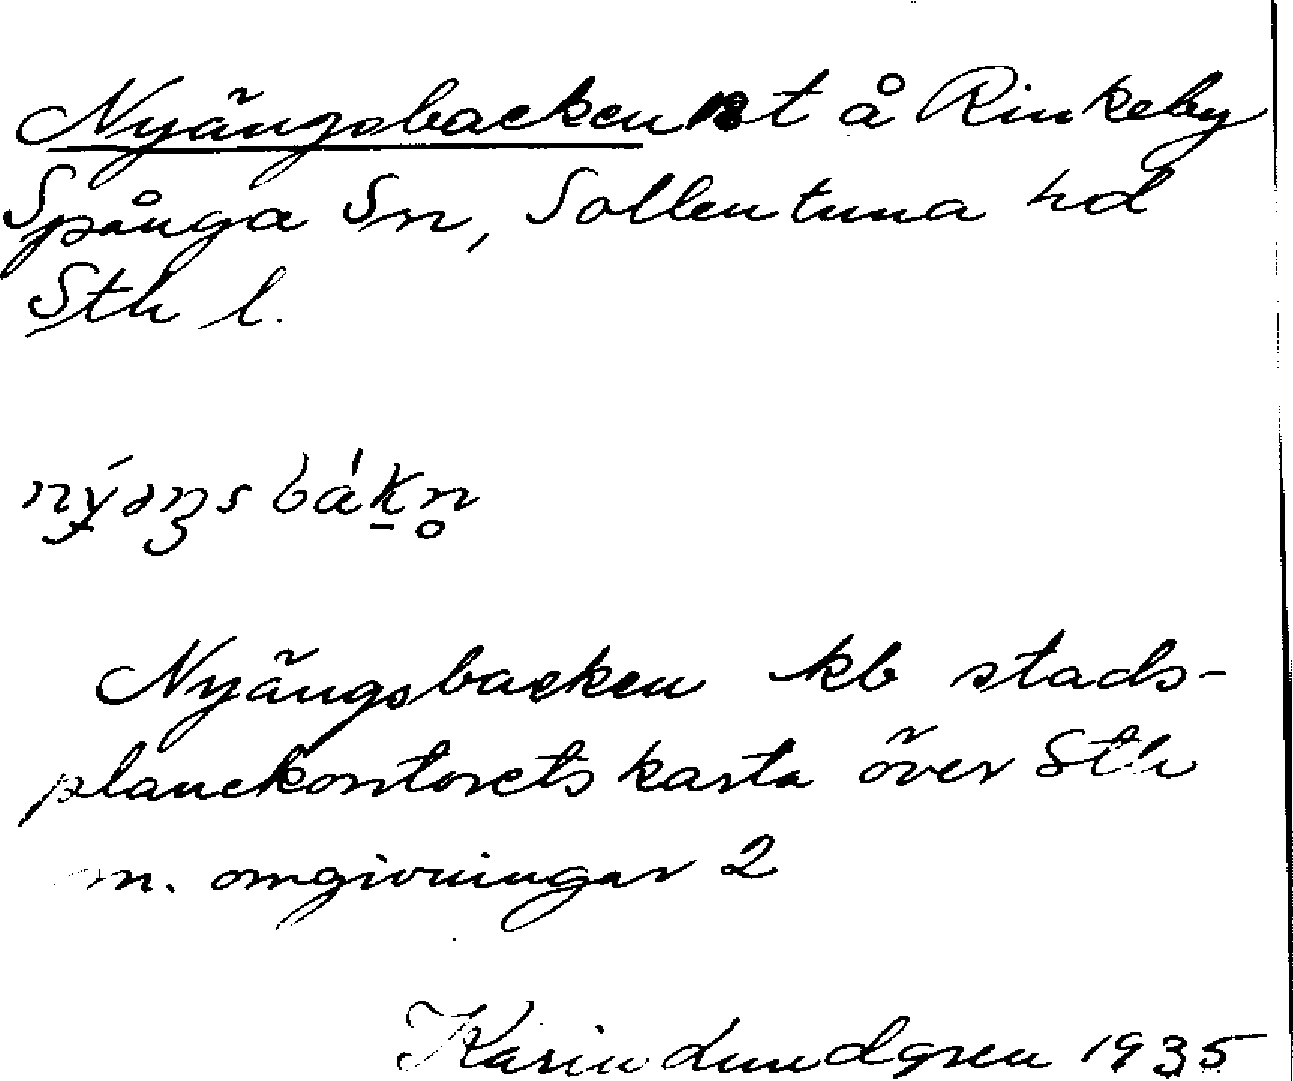 Nyängsbacken t å Rinkeby
Spånga Sn, Sollentuna hd
Sth l.
Nyängsbacken kb stads-
planekontorets karta över Sth
m. omgivningar 2
Karin Lundgren 1935